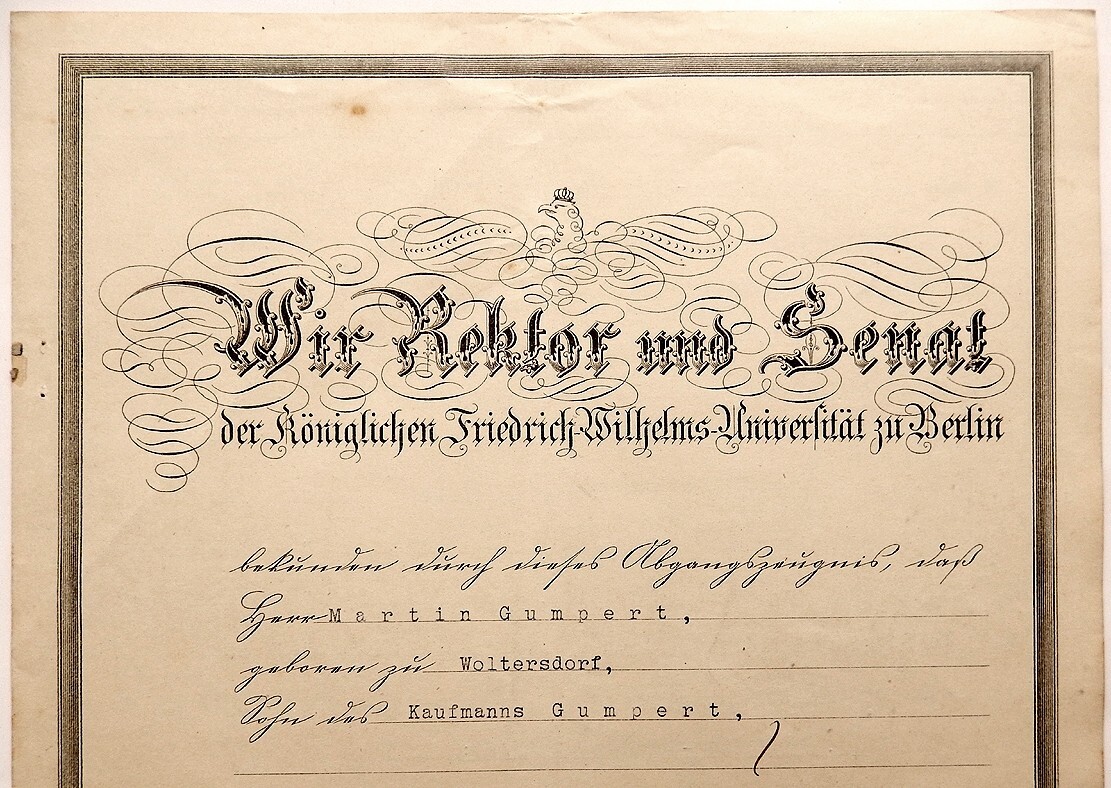 Wir Rektor und Senat
der Königlichen Friedrich-Wilhelms-Universität zu Berlin
bekunden durch dieses Abgangszeugnis, daß
Herr Martin Gumpert,
geboren zu Woltersdorf,
Sohn des Kaufmanns Gumpert,